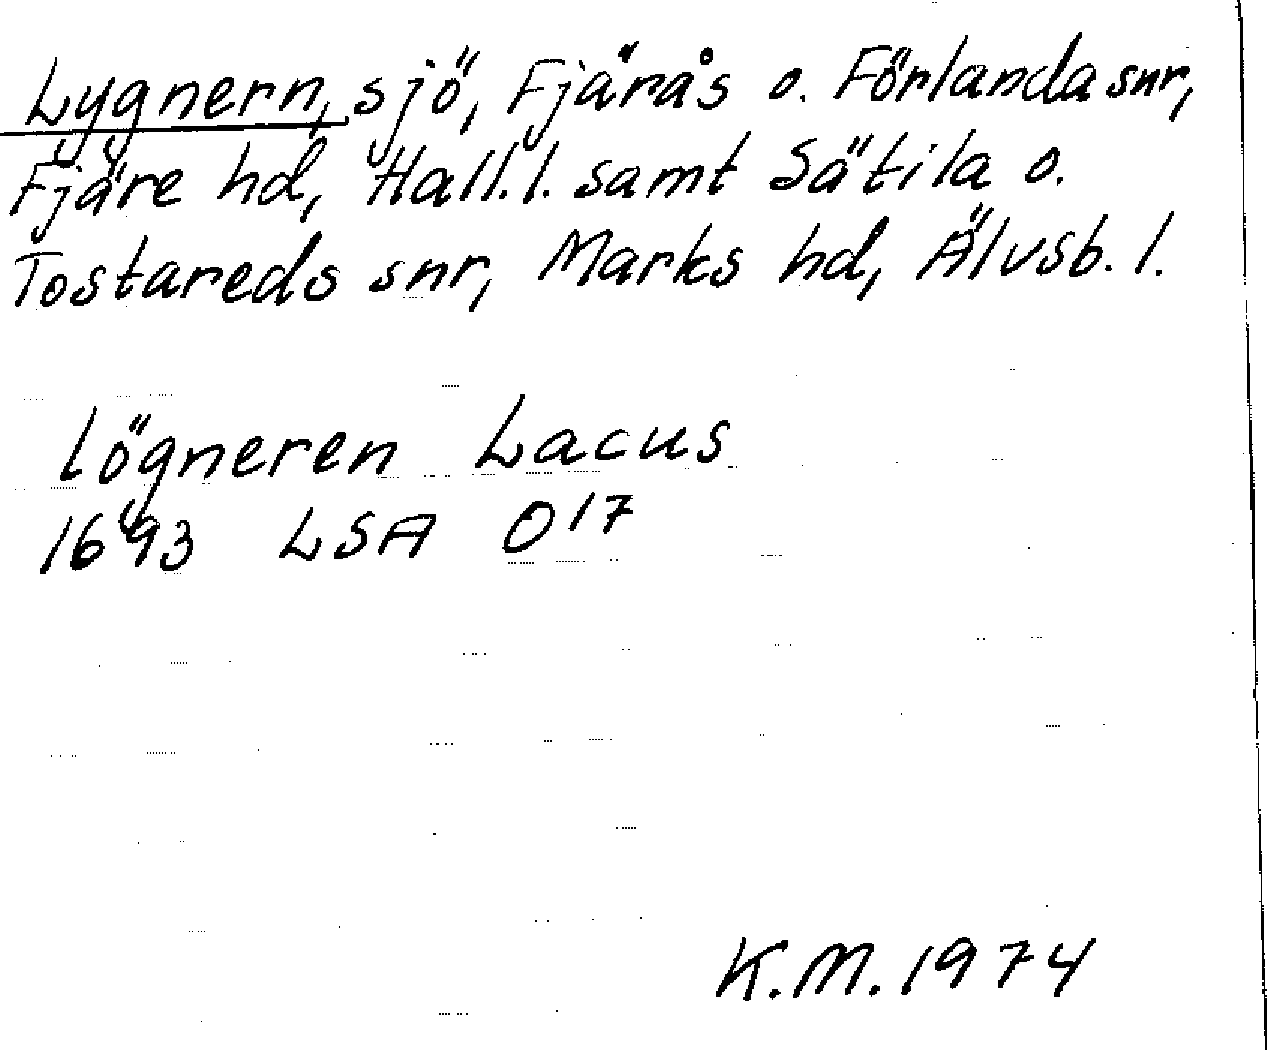 Lygnern, sjö, Fjärås o. Förlanda snr,
Fjäre hd, Hall.l. samt Sätila o.
Tostareds snr, Marks hd, Älvsb. l.
Lögneren Lacus
1693 LSA O17
K.M. 1974